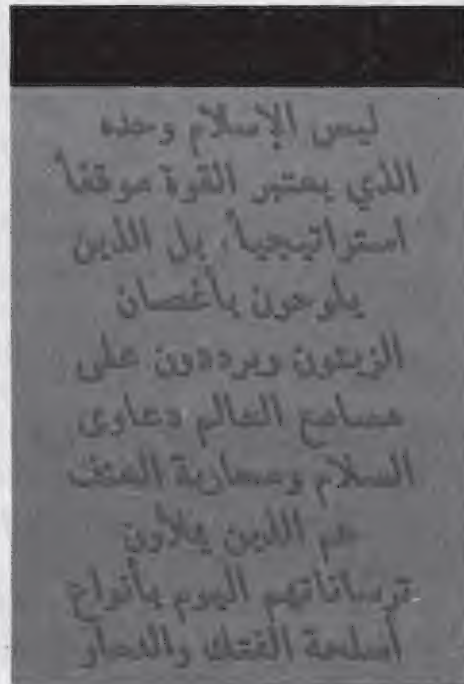 ليس الإسلام وحده
الذي يعتبر القوة موقفاً
استراتيجياً، بل الذين
يلوحون بأغصان
الزيتون ويرددون على
مسامع العالم دعاوى
السلام ومحاربة العنف
هم الذين يملأون
ترساناتهم اليوم بأنواع
أسلحة الفتك والدمار